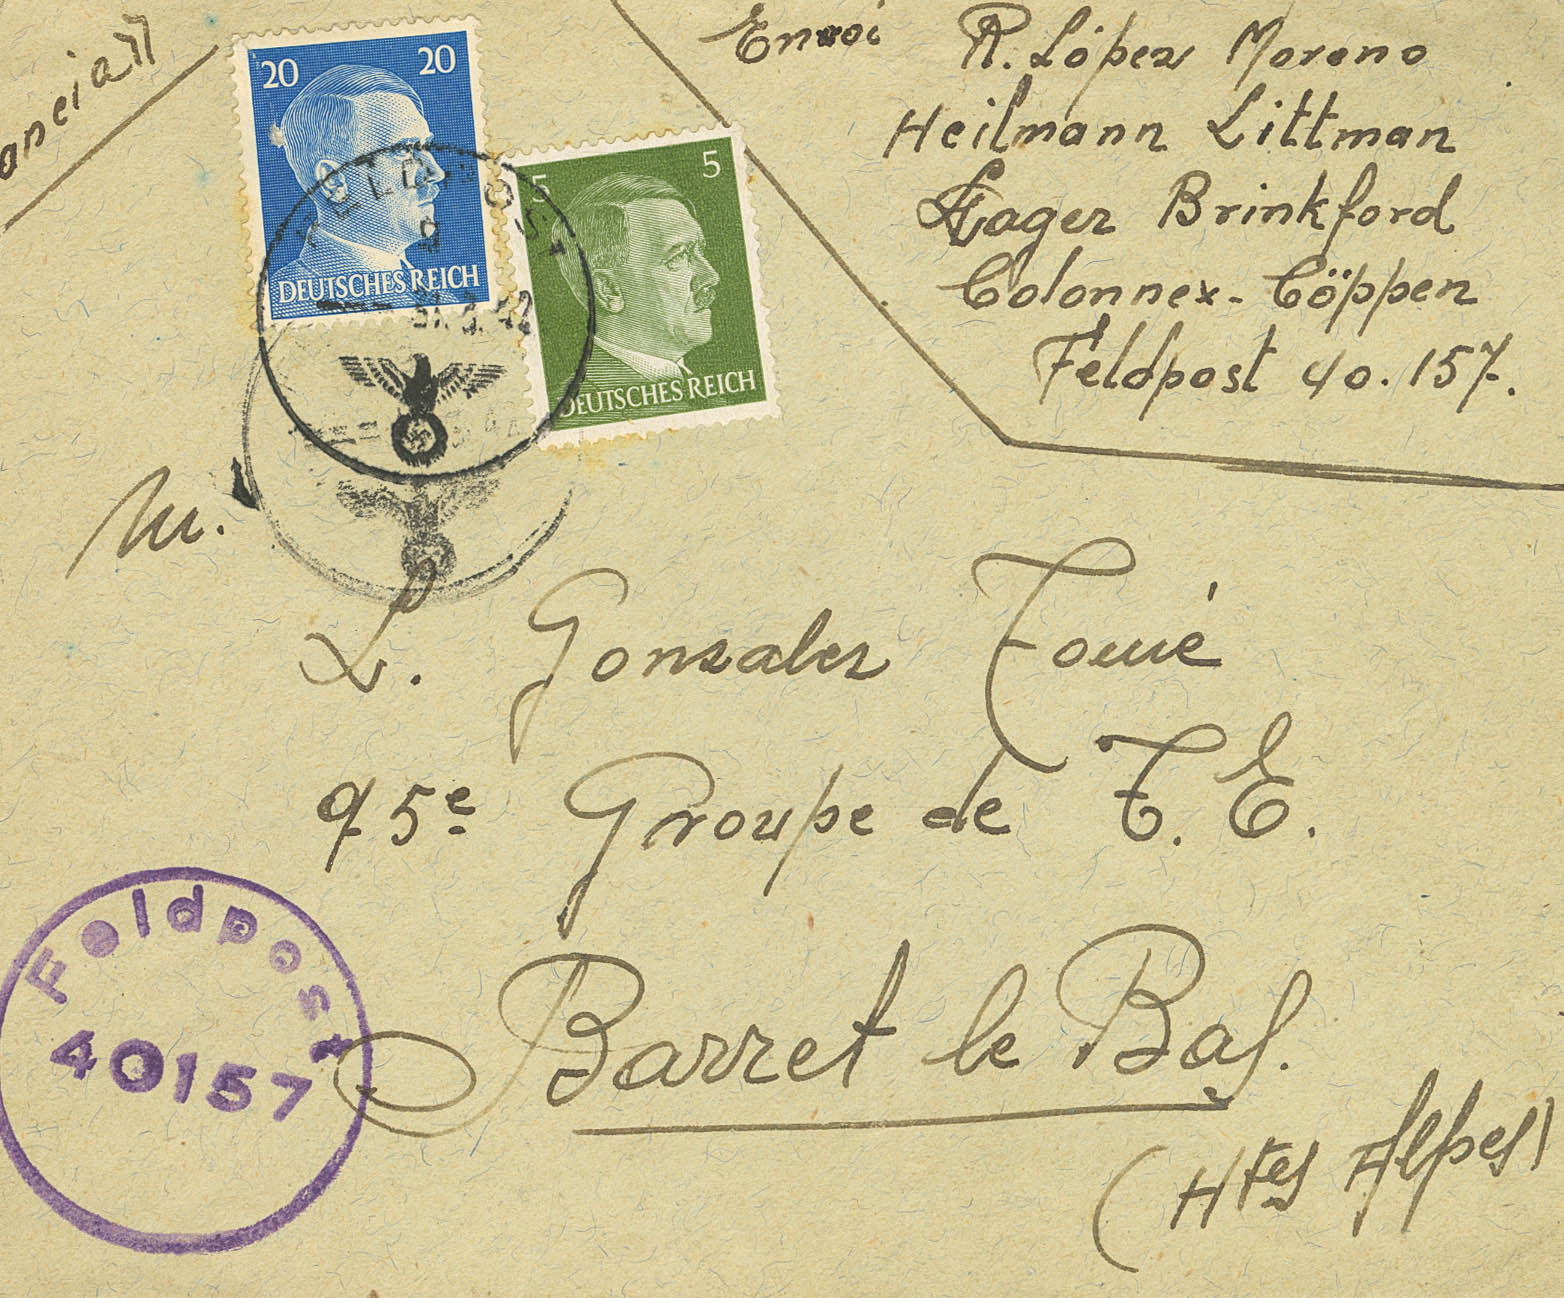 Envoi R. López Moreno
Heilmann Littman
Lager Brinkford
Colonnex-Cöppen
Feldpost 40.157.
20 20
DEUTSCHES REICH
5 5
DEUTSCHES REICH
FELDPOST
M.
L. Gonzalez
95e Groupe de T. E.
Barret le Bas.
(Htes Alpes)
Feldpost
40157